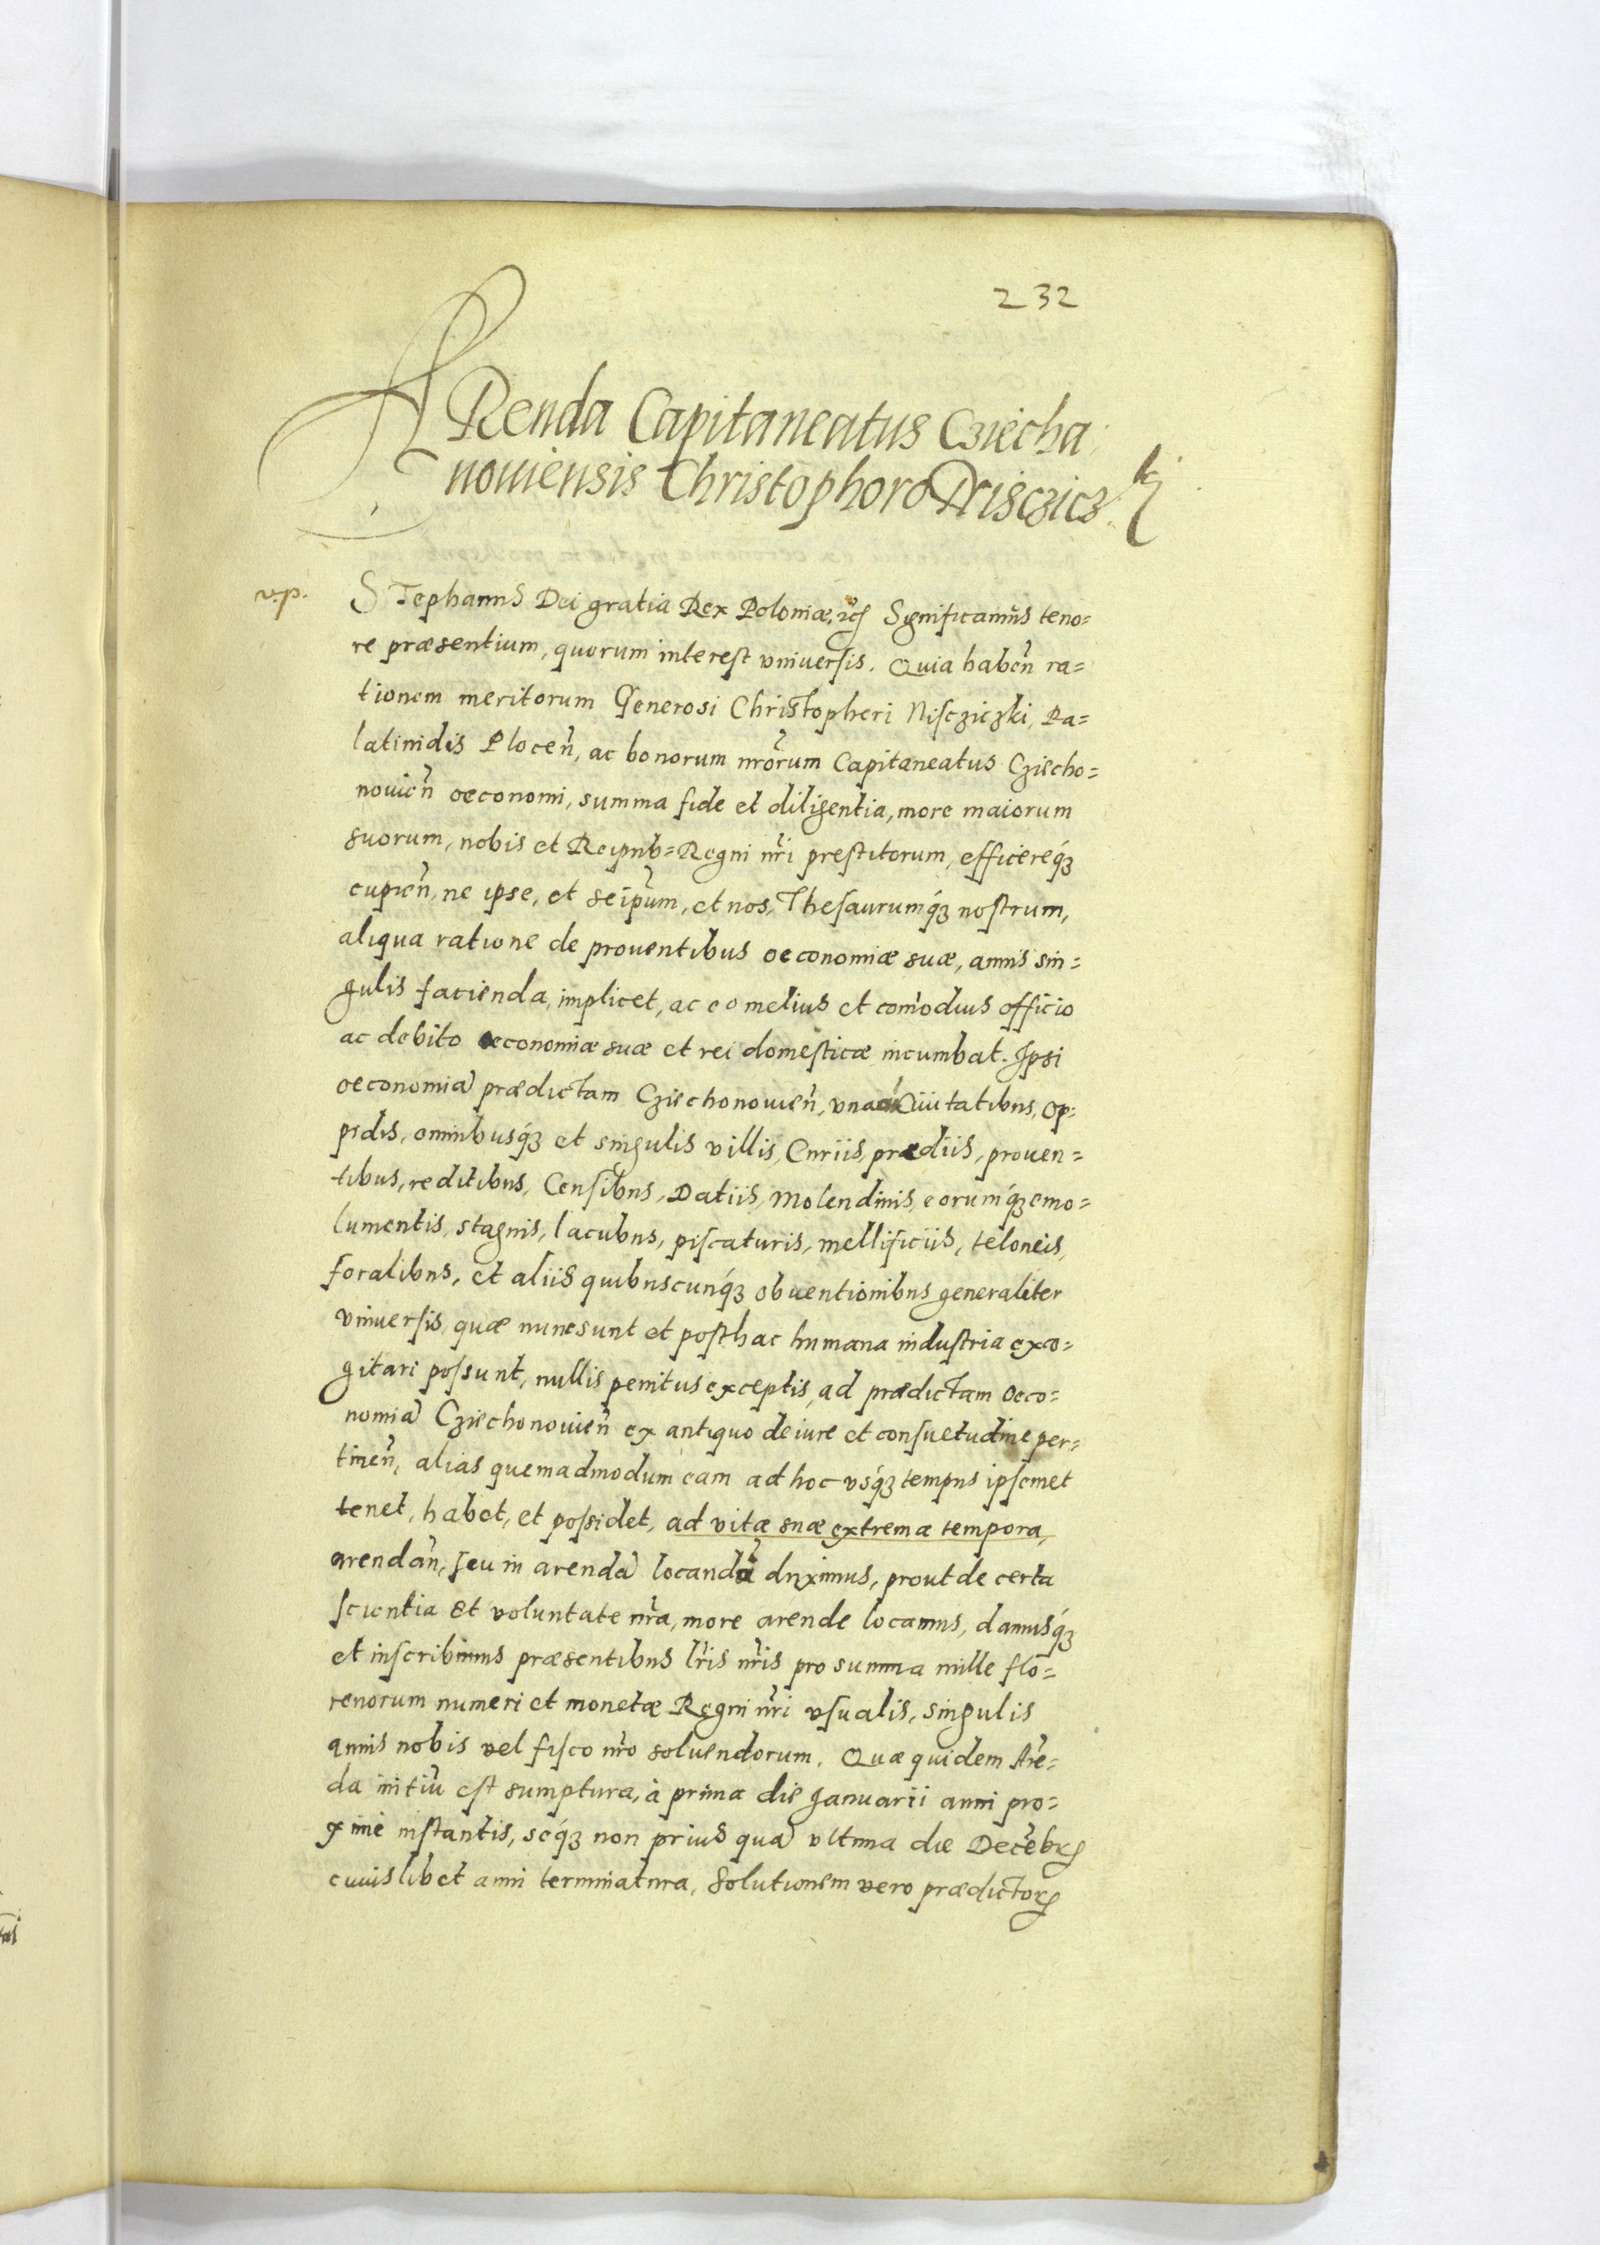 232
ARenda Capitaneatus Cziecha
nouiensis Christophoro Nisczicz
ki
v.p.
STephanus Dei gratia Rex Poloniæ, Significamus teno=
re præsentium, quorum interest vniuersis. Quia haben̄ ra=
tionem meritorum Generosi Christopheri Niscziczki, Pa=
latinidis Plocen̄, ac bonorum nr̄orum Capitaneatus Cziecho=
nouien̄ oeconomi, summa fide et diligentia, more maiorum
suorum, nobis et Reipub= Regni nr̄i prestitorum, efficereq́ꝫ
cupien̄, ne ipse, et seip̄um, et nos, Thesaurumq́ꝫ nostrum,
aliqua ratione de prouentibus oeconomiæ suæ, annis sin=
gulis facienda, implicet, ac eo melius et com̄odius officio
ac debito oeconomiæ suæ et rei domesticæ incumbat. Ipsi
oeconomiā prædictam Cziechonouien̄, vna Ciuitatibus, op=
pidis, omnibusq́ꝫ et singulis villis, Curiis, prædiis, prouen=
tibus, reditibus, Censibus, Datiis, Molendinis, eorumq́ꝫ emo=
lumentis, stagnis, lacubus, piscaturis, mellificiis, teloneis,
foralibus, et aliis quibuscunq́ꝫ obuentionibus generaliter
vniuersis, quæ nunc sunt et posthac humana industria exco=
gitari possunt, nullis penitus exceptis, ad prædictam oeco=
nomiā Cziechonouien̄ ex antiquo de iure et consuetudine per=
tinen̄, alias quemadmodum eam ad hoc vsq́ꝫ tempus ipsemet
tenet, habet, et possidet, ad vitæ suæ extrema tempora,
arendan̄, seu in arendā locandā duximus, prout de certa
scientia et voluntate nr̄a, more arende locamus, damusq́ꝫ
et inscribimus præsentibus lr̄is nr̄is pro summa mille flo=
renorum numeri et monetæ Regni nr̄i vsualis, singulis
annis nobis vel fisco nr̄o soluendorum. Quæ quidem Arē=
da initiū est sumptura, à prima die Januarii anni pro=
ximè instantis, seq́ꝫ non prius quā vltima die Decēbrꝭ
cuiuslibet anni terminatura, Solutionem vero prædictorꝝ